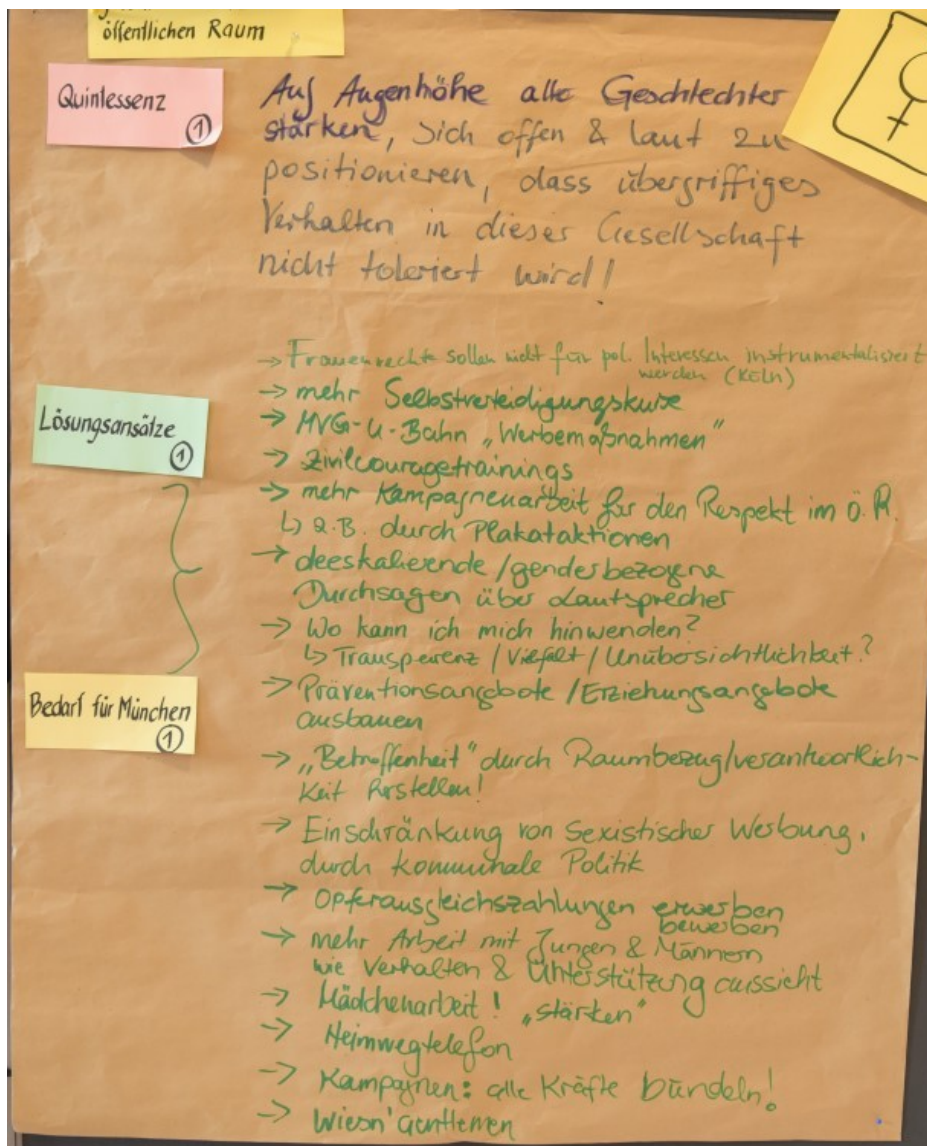 öffentlichen Raum
Quintessenz
①
Auf Augenhöhe alle Geschlechter
stärken, sich offen & laut zu
positionieren, dass übergriffiges
Verhalten in dieser Gesellschaft
nicht toleriert wird!
→ Frauenrechte sollen nicht für pol. Interessen instrumentalisiert
werden (Köln)
Lösungsansätze
①
→ mehr Selbstverteidigungskurse
→ MVG-U-Bahn „Werbemaßnahmen"
→ Zivilcouragetrainings
→ mehr Kampagnenarbeit für den Respekt im ö.R.
↳ z.B. durch Plakataktionen
→ deeskalierende/genderbezogene
Durchsagen über Lautsprecher
→ Wo kann ich mich hinwenden?
↳ Transparenz/Vielfalt/Unübersichtlichkeit?
Bedarf für München
①
→ Präventionsangebote/Erziehungsangebote
ausbauen
→ „Betroffenheit" durch Raumbezug/verantwortlich-
keit herstellen!
→ Einschränkung von sexistischer Werbung,
durch kommunale Politik
→ Opferausgleichszahlungen erwerben
bewerben
→ mehr Arbeit mit Jungen & Männern
wie Verhalten & Unterstützung aussieht
→ Mädchenarbeit! „stärken"
→ Heimwegtelefon
→ Kampagnen: alle Kräfte bündeln!
→ Wiesn' Gentlemen